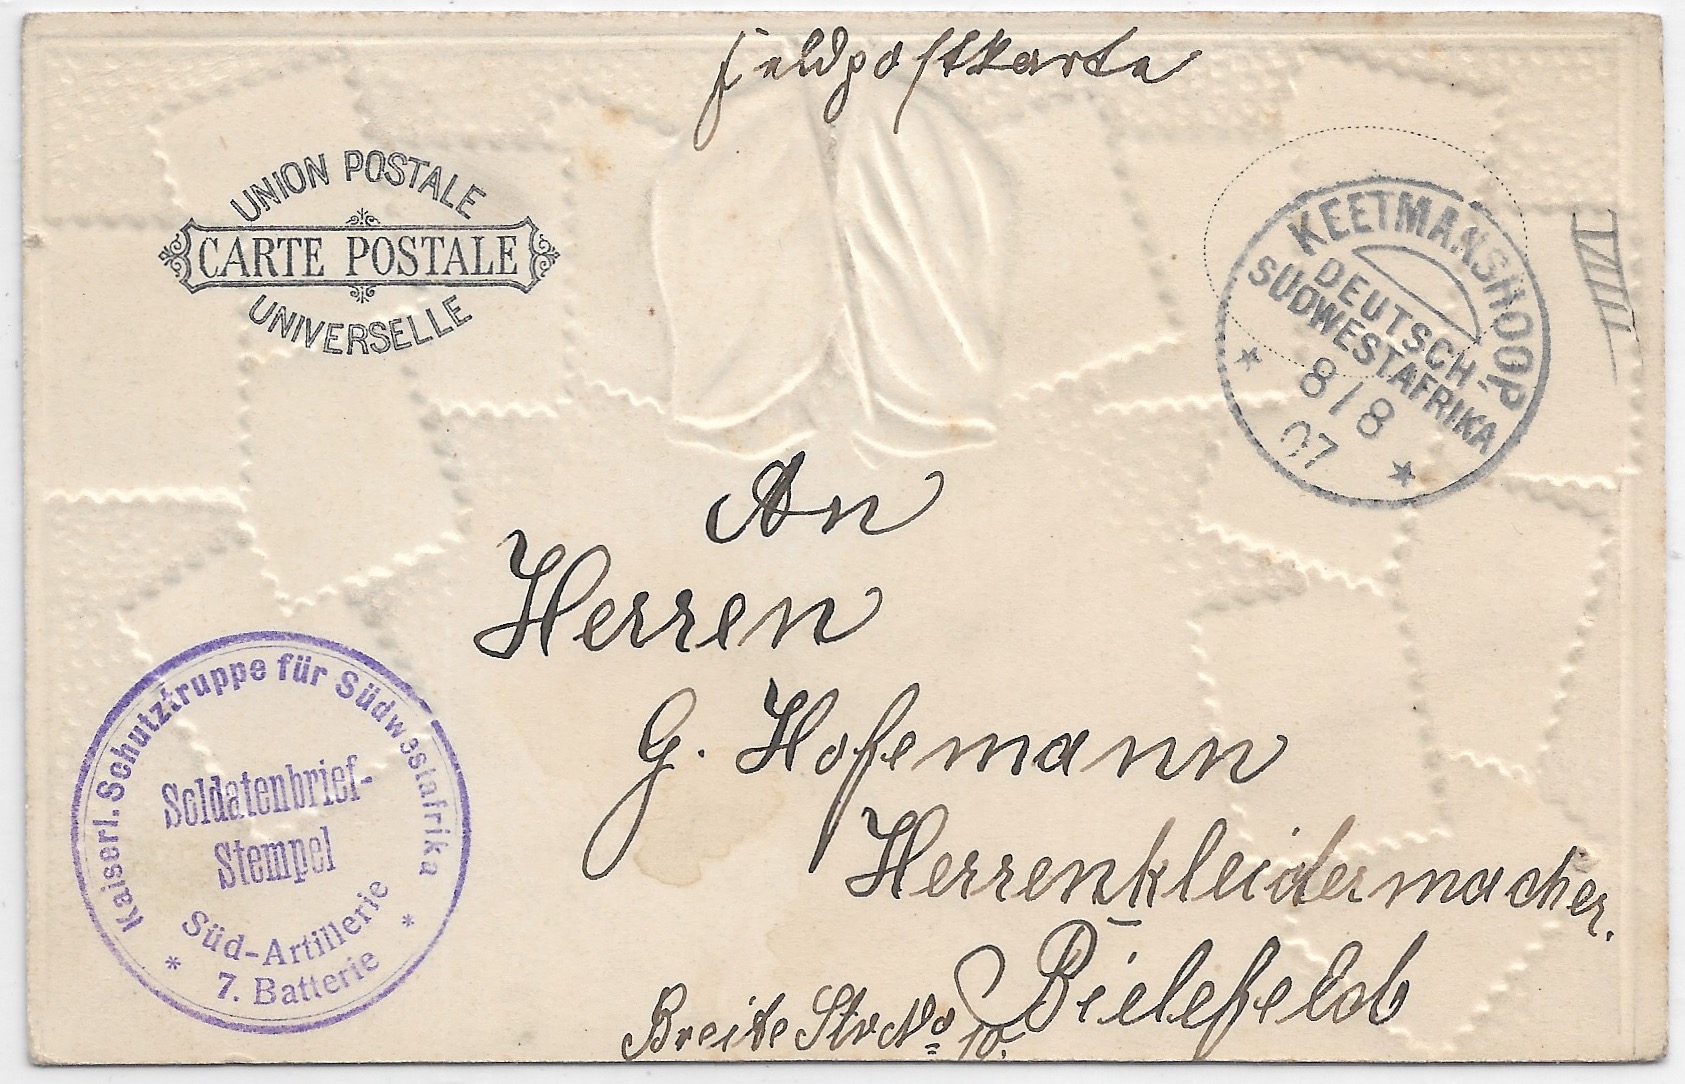 Feldpostkarte
UNION POSTALE
CARTE POSTALE
UNIVERSELLE
KEETMANSHOOP
DEUTSCH-
SÜDWESTAFRIKA
8/8
07
VIII
An
Herren
G. Hofemann
Herrenkleidermacher.
Bielefeld
Breite Str No 10.
Kaiserl. Schutztruppe für Südwestafrika
Soldatenbrief-
Stempel
Süd-Artillerie
* 7. Batterie *